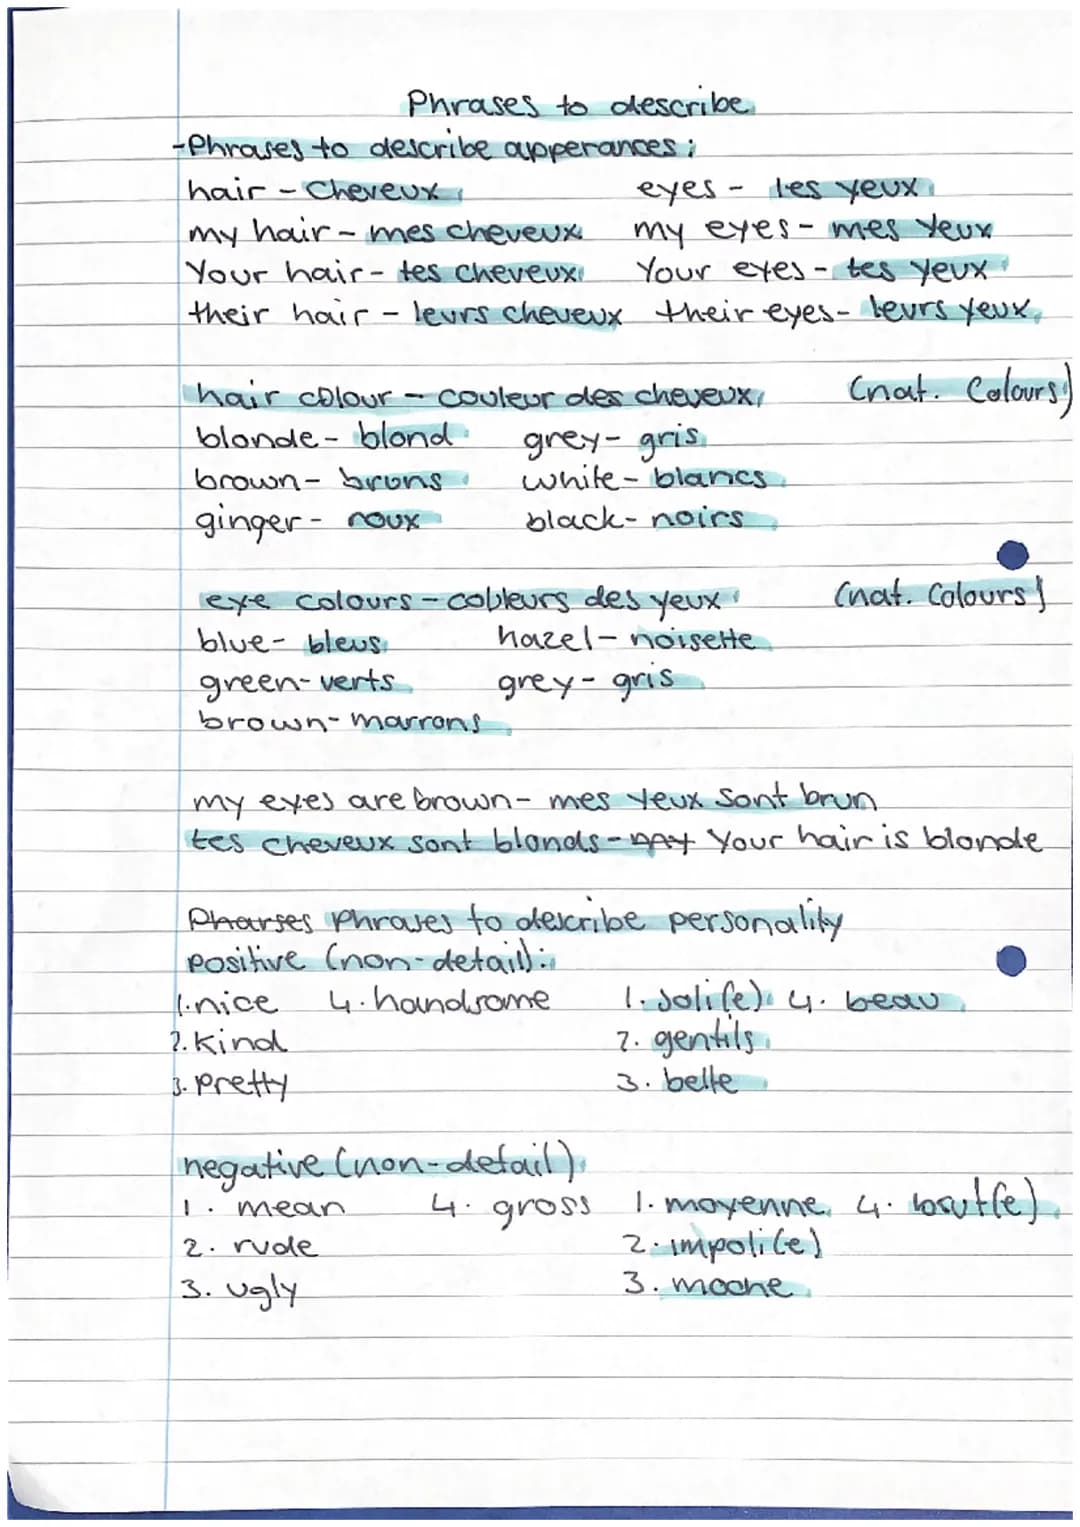 Phrases to describe
-Phrases to describe apperances:
hair - Cheveux eyes - les yeux
my hair - mes cheveux my eyes - mes yeux
Your hair - tes cheveux Your eyes - tes yeux
their hair - leurs cheveux their eyes - leurs yeux
hair colour - couleur des cheveux (nat. Colours)
blonde - blond grey - gris
brown - bruns white - blancs
ginger - roux black - noirs
eye colours - couleurs des yeux (nat. Colours)
blue - bleus hazel - noisette
green - verts grey - gris
brown - marrons
my eyes are brown - mes yeux sont brun
tes cheveux sont blonds - Your hair is blonde
Pharses Phrases to describe personality
positive (non-detail):
1. nice 4. handsome 1. Joli(e) 4. beau
2. kind 2. gentils
3. pretty 3. belle
negative (non-detail)
1. mean 4. gross 1. moyenne 4. brut(e)
2. rude 2. impoli(e)
3. ugly 3. moche